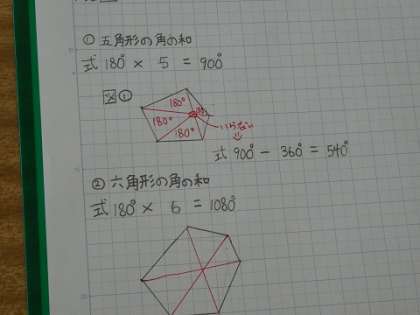 ① 五角形の角の和
式 180° × 5 = 900°
図①
180°
180°
180°
いらない
式 900° - 360° = 540°
② 六角形の角の和
式 180° × 6 = 1080°